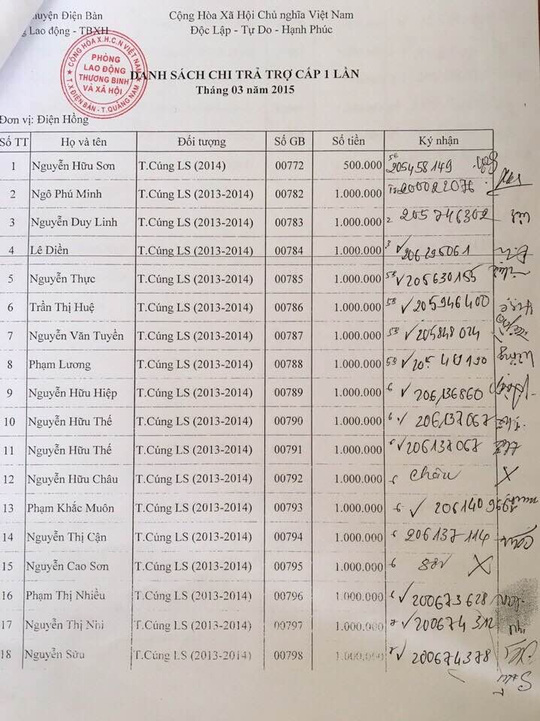 huyện Điện Bàn Cộng Hòa Xã Hội Chủ nghĩa Việt Nam
g Lao động - TBXH Độc Lập - Tự Do - Hạnh Phúc
PHÒNG
LAO ĐỘNG
THƯƠNG BINH
VÀ XÃ HỘI
DANH SÁCH CHI TRẢ TRỢ CẤP 1 LẦN
Tháng 03 năm 2015
Đơn vị: Điện Hồng
Số TT Họ và tên Đối tượng Số GB Số tiền Ký nhận
1 Nguyễn Hữu Sơn T.Cúng LS (2014) 00772 500.000 205458149
2 Ngô Phú Minh T.Cúng LS (2013-2014) 00782 1.000.000
3 Nguyễn Duy Linh T.Cúng LS (2013-2014) 00783 1.000.000 205746302
4 Lê Diễn T.Cúng LS (2013-2014) 00784 1.000.000 206295061
5 Nguyễn Thực T.Cúng LS (2013-2014) 00785 1.000.000 205630155
6 Trần Thị Huệ T.Cúng LS (2013-2014) 00786 1.000.000 205946400
7 Nguyễn Văn Tuyển T.Cúng LS (2013-2014) 00787 1.000.000 205848024
8 Phạm Lương T.Cúng LS (2013-2014) 00788 1.000.000
9 Nguyễn Hữu Hiệp T.Cúng LS (2013-2014) 00789 1.000.000 206136860
10 Nguyễn Hữu Thế T.Cúng LS (2013-2014) 00790 1.000.000 206137067
11 Nguyễn Hữu Thế T.Cúng LS (2013-2014) 00791 1.000.000 206137067
12 Nguyễn Hữu Châu T.Cúng LS (2013-2014) 00792 1.000.000 Châu
13 Phạm Khắc Muôn T.Cúng LS (2013-2014) 00793 1.000.000
14 Nguyễn Thị Cận T.Cúng LS (2013-2014) 00794 1.000.000 206137114
15 Nguyễn Cao Sơn T.Cúng LS (2013-2014) 00795 1.000.000
16 Phạm Thị Nhiều T.Cúng LS (2013-2014) 00796 1.000.000 200673628
17 Nguyễn Thị Nhi T.Cúng LS (2013-2014) 00797 1.000.000 200674312
18 Nguyễn Sửu T.Cúng LS (2013-2014) 00798 1.000.000 200674378